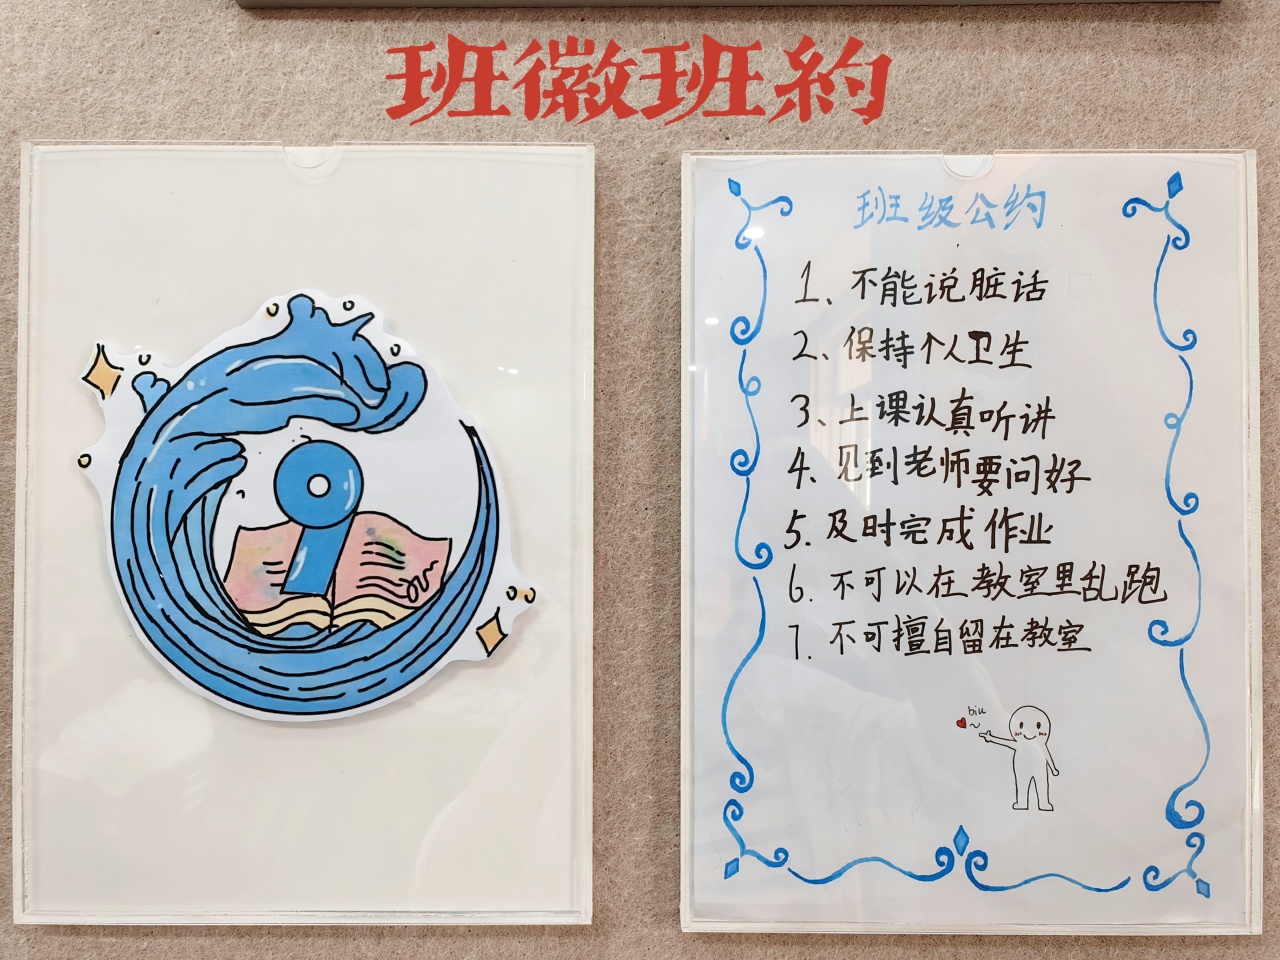 班徽班約
9
班级公约
1、不能说脏话
2、保持个人卫生
3、上课认真听讲
4、见到老师要问好
5.及时完成作业
6.不可以在教室里乱跑
7.不可擅自留在教室
biu
~